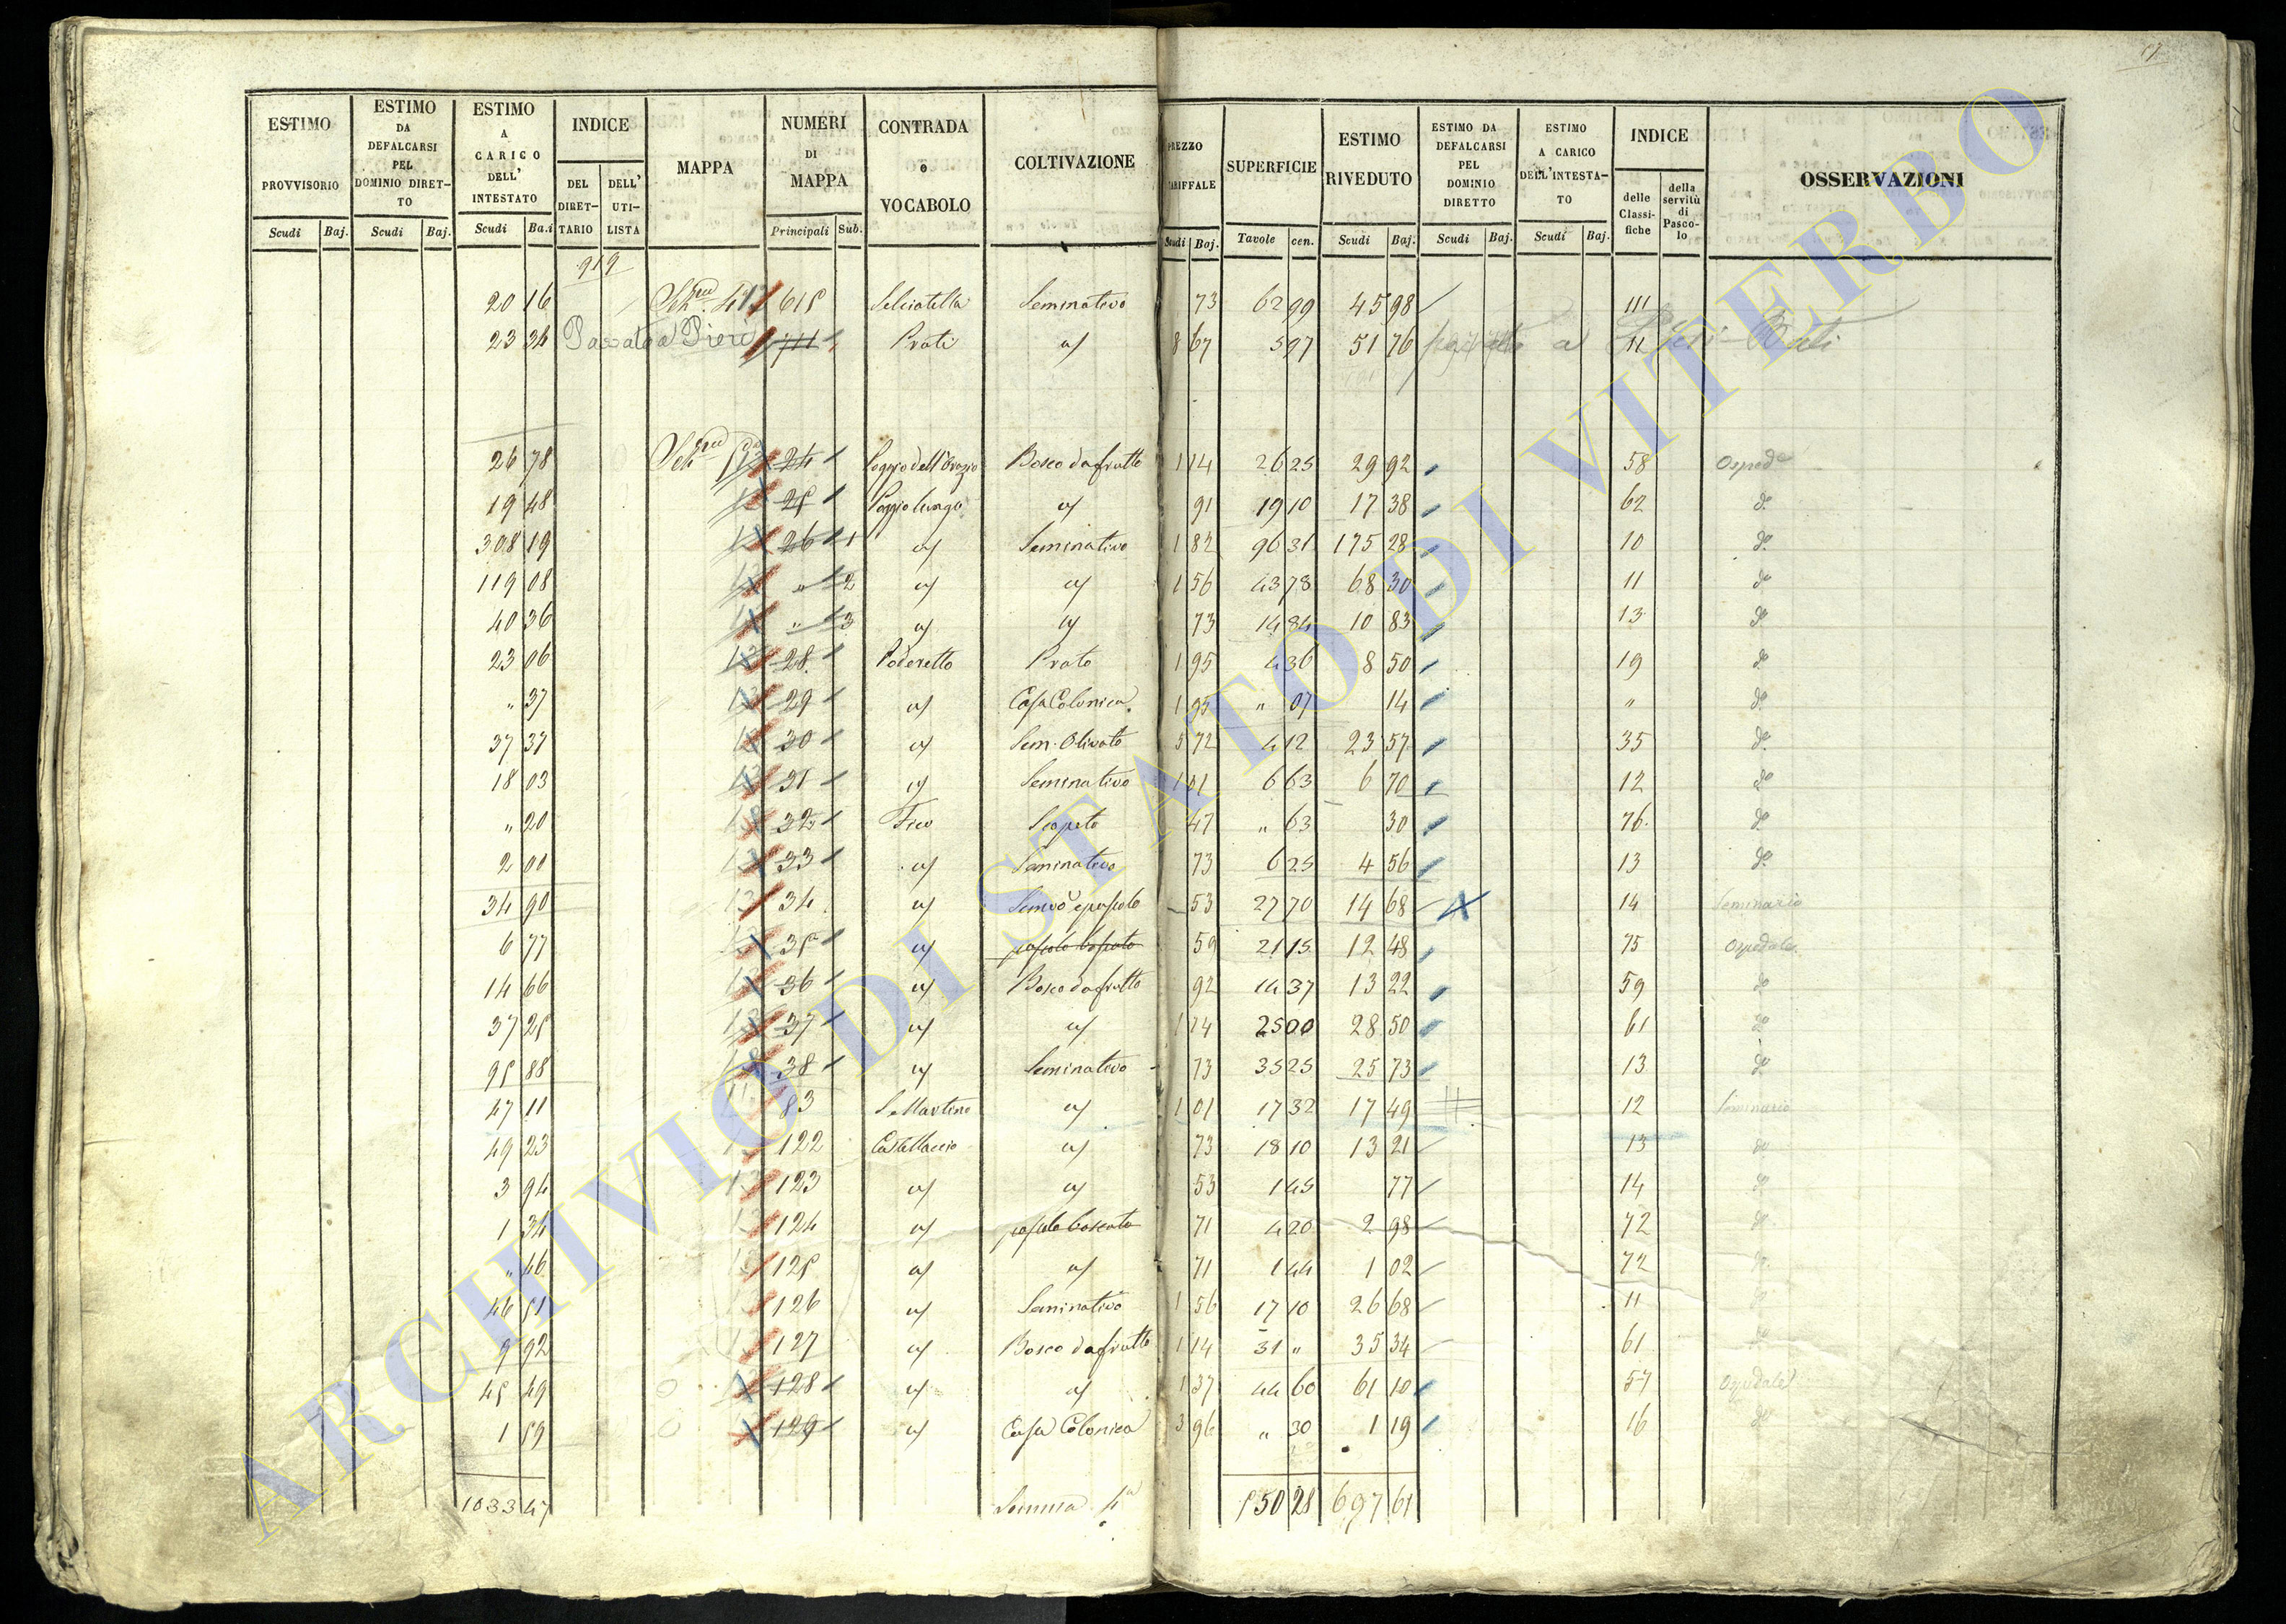 17
ESTIMO PROVVISORIO | ESTIMO DA DEFALCARSI PEL DOMINIO DIRETTO | ESTIMO A CARICO DELL' INTESTATO | INDICE | MAPPA | NUMERI DI MAPPA | CONTRADA o VOCABOLO | COLTIVAZIONE | PREZZO TARIFFALE | SUPERFICIE | ESTIMO RIVEDUTO | ESTIMO DA DEFALCARSI PEL DOMINIO DIRETTO | ESTIMO A CARICO DELL'INTESTATO | INDICE | OSSERVAZIONI
DEL DIRETTARIO | DELL' UTILISTA | delle Classifiche | della servitù di Pascolo
Scudi | Baj. | Scudi | Baj. | Scudi | Ba.i | Principali | Sub. | Scudi | Baj. | Tavole | cen. | Scudi | Baj. | Scudi | Baj. | Scudi | Baj.
919
20 16 | 615 | Selciatella | Seminativo | 73 | 62 99 | 45 98 | 111
23 34 | Passato a Pieri | 711 | Prati | a/ | 8 67 | 5 97 | 51 76 | a Pieri | 11
26 78 | 24 | Poggio dell'Orazio | Bosco da frutto | 1 14 | 26 25 | 29 92 | 58 | Osped.e
19 48 | 13 | 25 | Poggio lungo | a/ | 91 | 19 10 | 17 38 | 62 | d.o
308 19 | 13 | 26 | 1 | a/ | Seminativo | 1 82 | 96 31 | 175 28 | 10 | d.o
119 08 | 13 | " | 2 | a/ | a/ | 1 56 | 43 78 | 68 30 | 11 | d.o
40 36 | 13 | " | 3 | a/ | a/ | 73 | 14 84 | 10 83 | 13 | d.o
23 06 | 13 | 28 | Poderetto | Prato | 1 95 | 4 36 | 8 50 | 19 | d.o
" 37 | 13 | 29 | a/ | Casa Colonica | 1 95 | " 07 | 14 | " | d.o
37 37 | 13 | 30 | a/ | Sem. Olivato | 5 72 | 4 12 | 23 57 | 35 | d.o
18 03 | 13 | 31 | a/ | Seminativo | 1 01 | 6 63 | 6 70 | 12 | d.o
" 20 | 13 | 32 | Fico | Scopeto | 47 | " 63 | 30 | 76 | d.o
2 00 | 13 | 33 | a/ | Seminativo | 73 | 6 25 | 4 56 | 13 | d.o
34 90 | 13 | 34 | a/ | Semvo e pascolo | 53 | 27 70 | 14 68 | 14 | Seminario
6 77 | 13 | 35 | a/ | pascolo boscato | 59 | 21 15 | 12 48 | 75 | Ospedale
14 66 | 13 | 36 | a/ | Bosco da frutto | 92 | 14 37 | 13 22 | 59 | d.o
37 25 | 13 | 37 | a/ | a/ | 1 14 | 25 00 | 28 50 | 61 | d.o
95 88 | 13 | 38 | a/ | Seminativo | 73 | 35 25 | 25 73 | 13 | d.o
47 11 | 83 | S. Martino | a/ | 1 01 | 17 32 | 17 49 | 12 | Seminario
49 23 | 122 | Castellaccio | a/ | 73 | 18 10 | 13 21 | 13 | d.o
3 94 | 13 | 123 | a/ | a/ | 53 | 1 45 | 77 | 14 | d.o
1 34 | 13 | 124 | a/ | pascolo boscato | 71 | 4 20 | 2 98 | 72 | d.o
" 46 | 13 | 125 | a/ | a/ | 71 | 1 44 | 1 02 | 72
46 51 | 126 | a/ | Seminativo | 1 56 | 17 10 | 26 68 | 11
9 92 | 127 | a/ | Bosco da frutto | 1 14 | 31 " | 35 34 | 61 | d.o
45 49 | 128 | a/ | a/ | 1 37 | 44 60 | 61 10 | 57 | Ospedale
1 59 | 129 | a/ | Casa Colonica | 3 96 | " 30 | 1 19 | 16 | d.o
1033 47 | Somma 4a | 550 28 | 697 61
ARCHIVIO DI STATO DI VITERBO